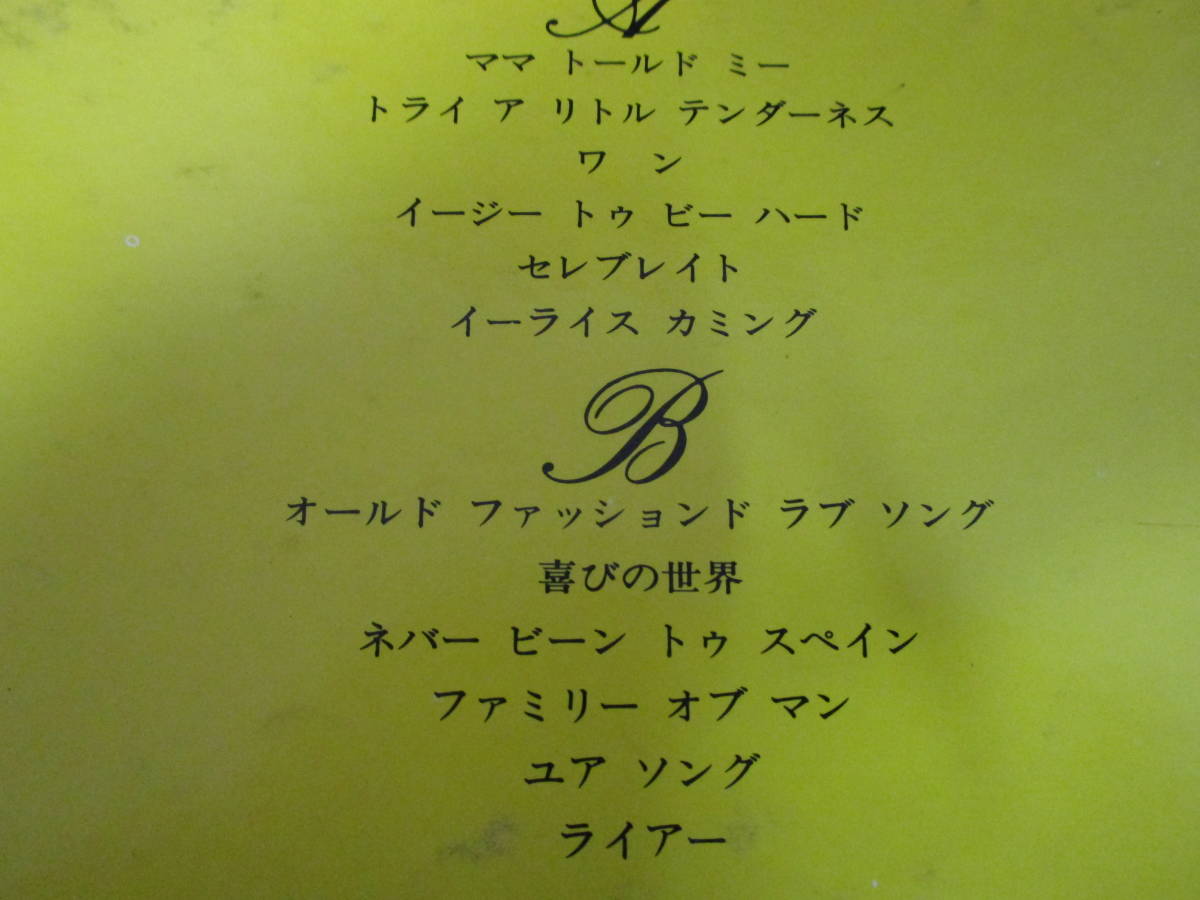 A
ママ トールド ミー
トライ ア リトル テンダーネス
ワ ン
イージー トゥ ビー ハード
セレブレイト
イーライス カミング
B
オールド ファッションド ラブ ソング
喜びの世界
ネバー ビーン トゥ スペイン
ファミリー オブ マン
ユア ソング
ライアー